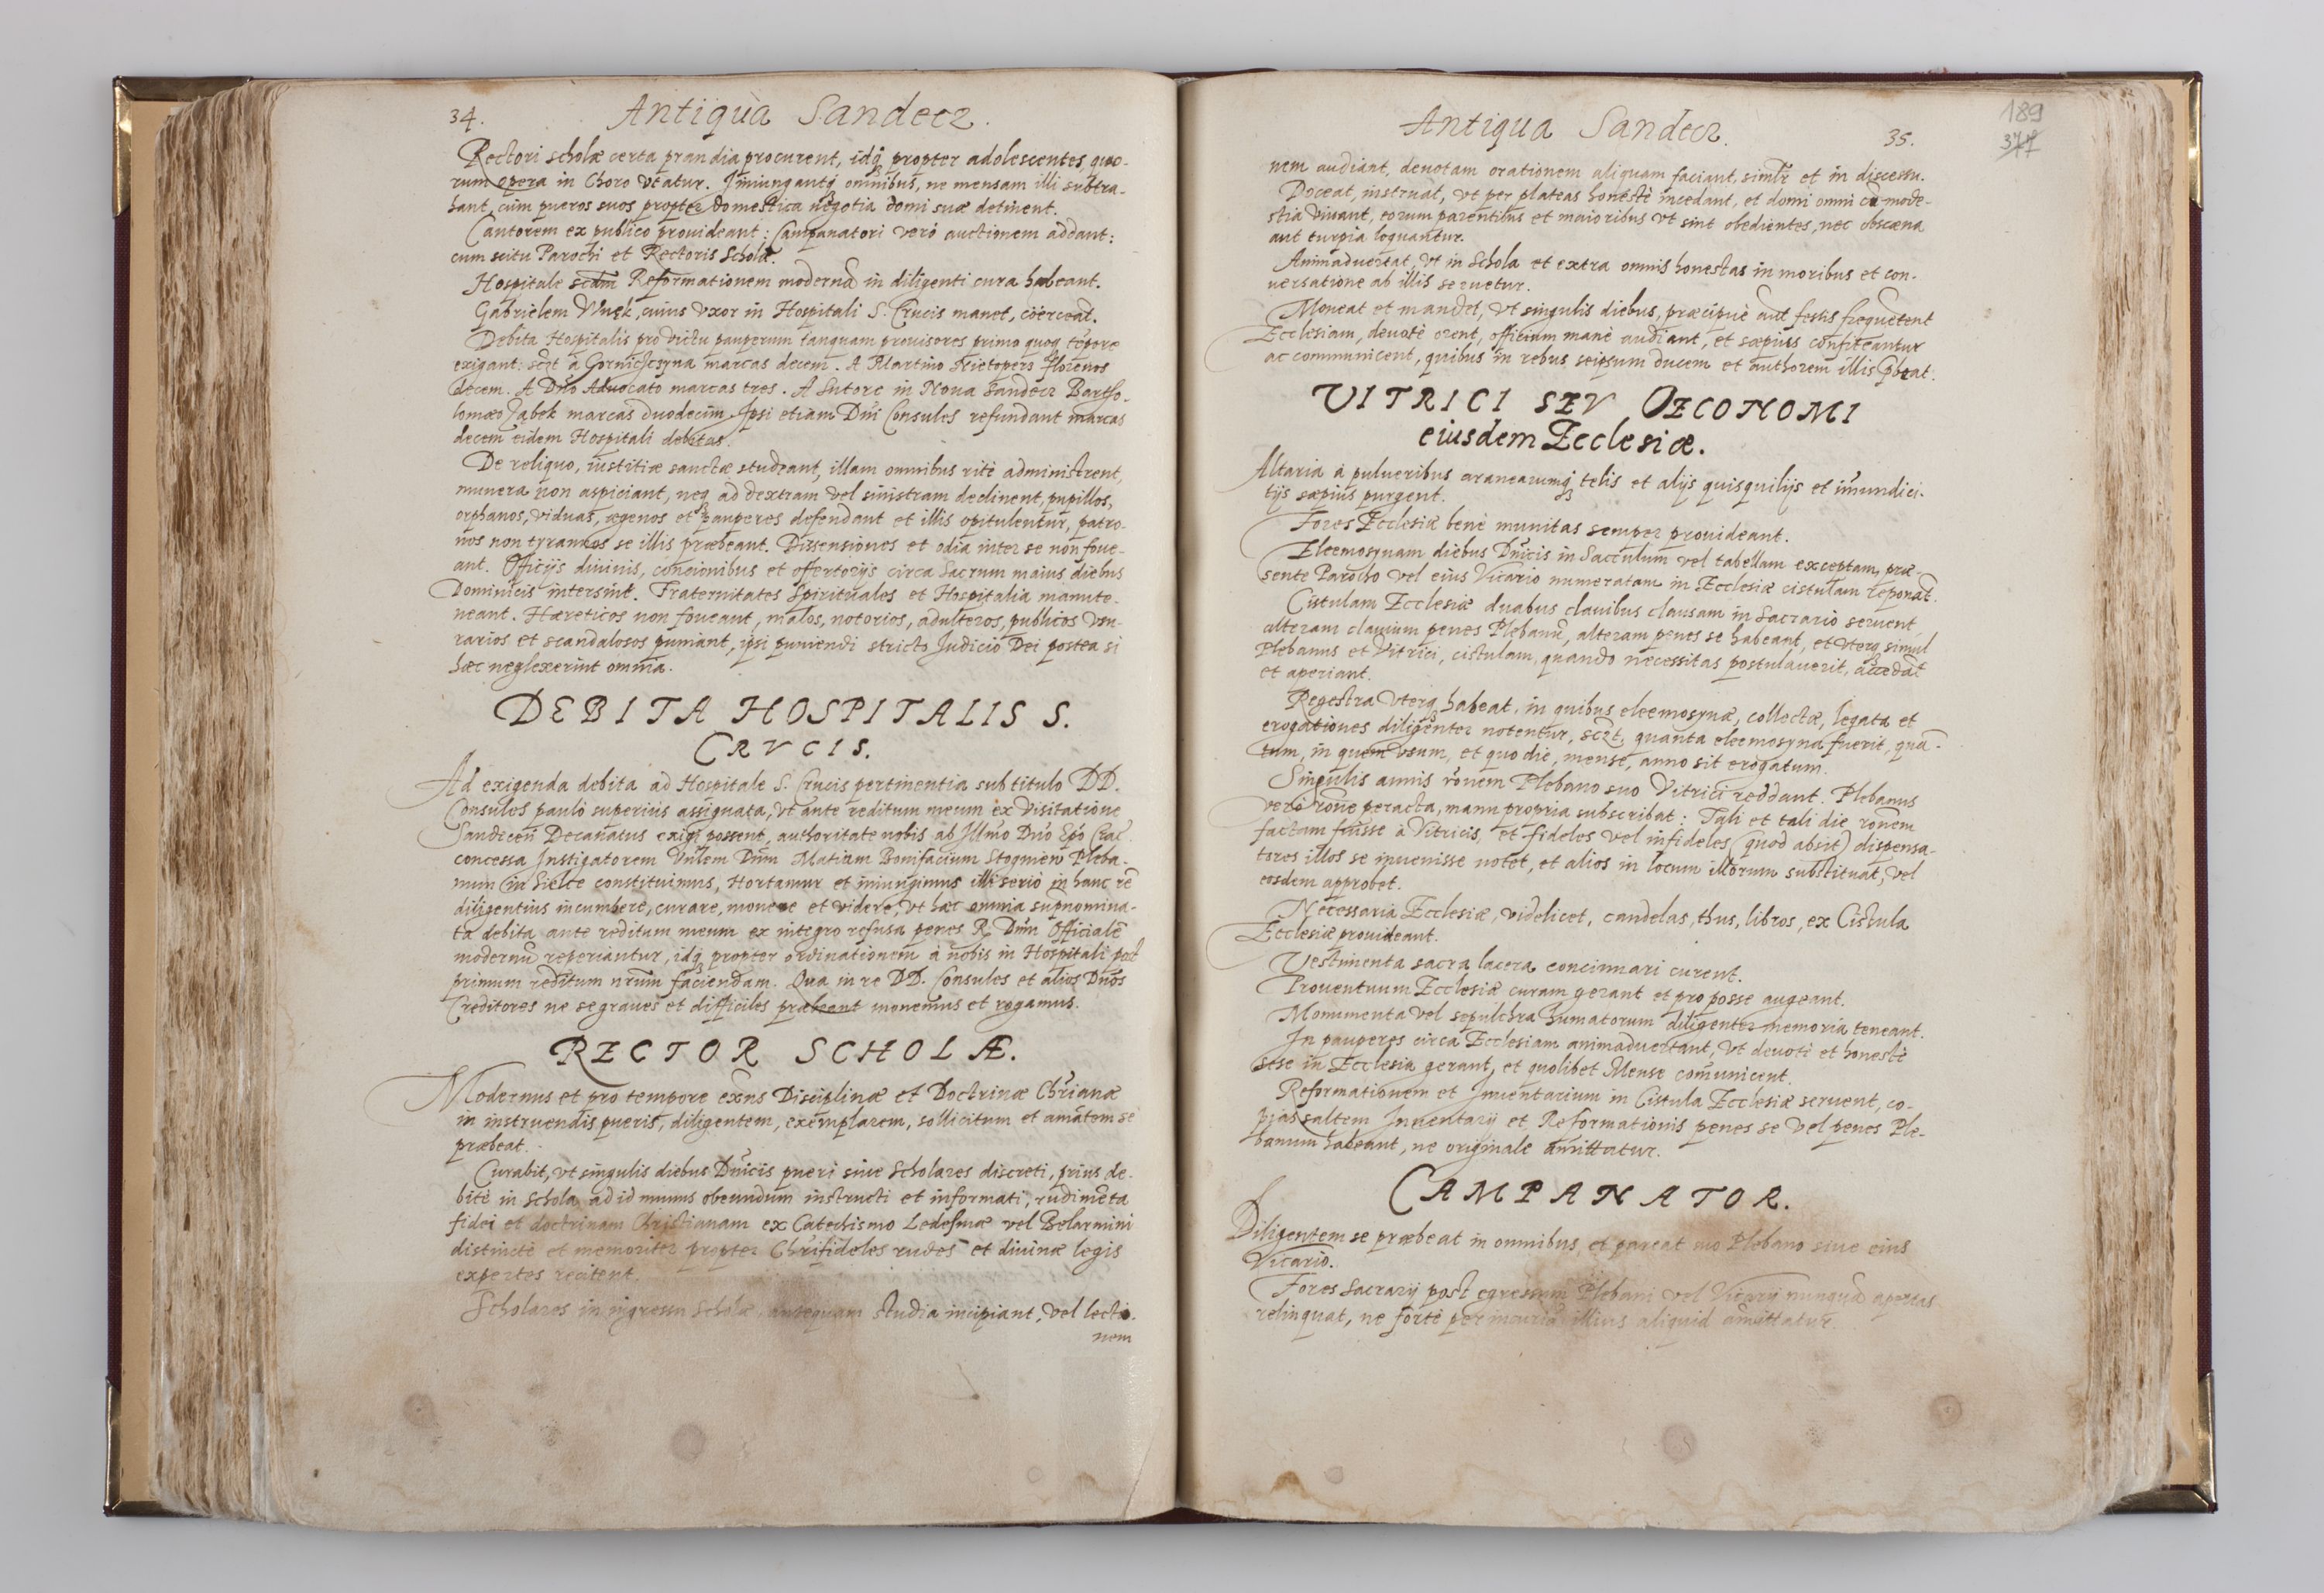 34.
Antiqua Sandecz.
Rectori scholæ certa prandia procurent, idq; propter adolescentes, quo-
rum opera in Choro vtatur. Iniungantq; omnibus, ne mensam illi subtra-
hant, cùm pueros suos propter domestica negotia domi suæ detinent.
Cantorem ex publico prouideant: Campanatori verò auctionem addant:
cum scitu Parochi et Rectoris Scholæ.
Hospitale scdm Reformationem modernã in diligenti cura habeant.
Gabrielem Wnęk, cuius vxor in Hospitali S. Crucis manet, coërceãt.
Debita Hospitalis pro victu pauperum tanquam prouisores primo quoq; tẽpore
exigant: sczt à marcas decem. A Martino Nietopers florenos
decem. A Dno Aduocato marcas tres. A Sutore in Noua Sandecz Bartho-
lomæo Ząbek marcas duodecim. Ipsi etiam Dni Consules refundant marcas
decem eidem Hospitali debitas.
De reliquo, iustitiæ sanctæ studeant, illam omnibus ritè administrent,
munera non aspiciant, neq; ad dextram vel sinistram declinent, pupillos,
orphanos, viduas, ægenos et pauperes defendant et illis opitulentur, patro-
nos non tyrannos se illis præbeant. Dissensiones et odia inter se non foue-
ant. Officijs diuinis, concionibus et offertorijs circa Sacrum maius diebus
Dominicis intersint. Fraternitates Spirituales et Hospitalia manute-
neant. Hæreticos non foueant, malos, notorios, adulteros, publicos vsu-
rarios et scandalosos puniant, ipsi puniendi stricto Iudicio Dei postea si
hæc neglexerint omnia.
DEBITA HOSPITALIS S.
CRVCIS.
Ad exigenda debita ad Hospitale S. Crucis pertinentia sub titulo DD.
Consules paulò superius assignata, vt ante reditum meum ex visitatione
Sandecen̄ Decanatus exigi possent, authoritate nobis ab Illmo Dno Epo Crac̄
concessa Instigatorem Vnlem Dnm Bonifacium Pleba-
num in constituimus, Hortamur et iniungimus illi seriò in hanc rẽ
diligentius incumbere, curare, monere et videre, vt hæc omnia supnomina-
ta debita ante reditum meum ex integro refusa penes R. Dnm Officialẽ
modernũ reperiantur, idq; propter ordinationem à nobis in Hospitali post
primum reditum nrum faciendam. Qua in re DD. Consules et alios Dnos
Creditores ne se graues et difficiles præbeant monemus et rogamus.
RECTOR SCHOLÆ.
Modernus et pro tempore exns Disciplinæ et Doctrinæ Chrianæ
in instruendis pueris, diligentem, exemplarem, sollicitum et amãtem se
præbeat.
Curabit, vt singulis diebus Dnicis pueri siue Scholares discreti, prius de-
bitè in schola, ad id munus obeundum instructi et informati, rudimẽta
fidei et doctrinam Christianam ex Catechismo Ledesmæ vel Belarmini
distinctè et memoriter propter Chrifideles rudes et diuinæ legis
expertes recitent.
Scholares in ingressu scholæ, antequam studia incipiant, vel lectio-
nem
Antiqua Sandecz.
35.
189
377
nem audiant, deuotam orationem aliquam faciant, simlr et in discessu.
Doceat, instruat, vt per plateas honestè incedant, et domi omni cũ mode-
stia viuant, eorum parentibus et maioribus vt sint obedientes, nec obscæna
aut turpia loquantur.
Animaduertat, vt in Schola et extra omnis honestas in moribus et con-
uersatione ab illis seruetur.
Moneat et mandet, vt singulis diebus, præcipuè aut festis frequẽtent
Ecclesiam, deuotè orent, officium manè audiant, et sæpius confiteantur
ac communicent, quibus in rebus seipsum ducem et authorem illis pbeat.
VITRICI SEV OECONOMI
eiusdem Ecclesiæ.
Altaria à pulueribus aranearumq; telis et alijs quisquilijs et im̃undici-
tijs sæpius purgent.
Fores Ecclesiæ benè munitas semper prouideant.
Eleemosynam diebus Dnicis in Sacculum vel tabellam exceptam, præ-
sente Parocho vel eius Vicario numeratam in Ecclesiæ cistulam reponãt.
Cistulam Ecclesiæ duabus clauibus clausam in Sacrario seruent,
alteram clauium penes Plebanũ, alteram penes se habeant, et vterq; simul
Plebanus et Vitrici, cistulam, quando necessitas postulauerit, accedãt
et aperiant.
Regestra vterq; habeat, in quibus eleemosynæ, collectæ, legata et
erogationes diligenter notentur, sczt, quanta eleemosyna fuerit, quã-
tum, in quem vsum, et quo die, mense, anno sit erogatum.
Singulis annis rõnem Plebano suo Vitrici reddant. Plebanus
verò rõne peracta, manu propria subscribat: Tali et tali die rõnem
factam fuisse à Vitricis, et fideles vel infideles (quod absit) dispensa-
tores illos se inuenisse notet, et alios in locum illorum substituat, vel
eosdem approbet.
Necessaria Ecclesiæ, videlicet, candelas, thus, libros, ex Cistula
Ecclesiæ prouideant.
Vestimenta sacra lacera concinnari curent.
Prouentuum Ecclesiæ curam gerant et pro posse augeant.
Monumenta vel sepulchra humatorum diligenter memoria teneant.
In pauperes circa Ecclesiam animaduertant, vt deuotè et honestè
sese in Ecclesia gerant, et quolibet Mense com̃unicent.
Reformationem et Inuentarium in Cistula Ecclesiæ seruent, co-
pias saltem Inuentarij et Reformationis penes se vel penes Ple-
banum habeant, ne originale amittatur.
CAMPANATOR.
Diligentem se præbeat in omnibus, et pareat suo Plebano siue eius
Vicario.
Fores Sacrarij post egressum Plebani vel Vicarij nunquã apertas
relinquat, ne fortè per incuria illius aliquid amittatur.